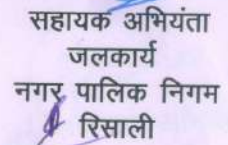 सहायक अभियंता
जलकार्य
नगर पालिक निगम
रिसाली